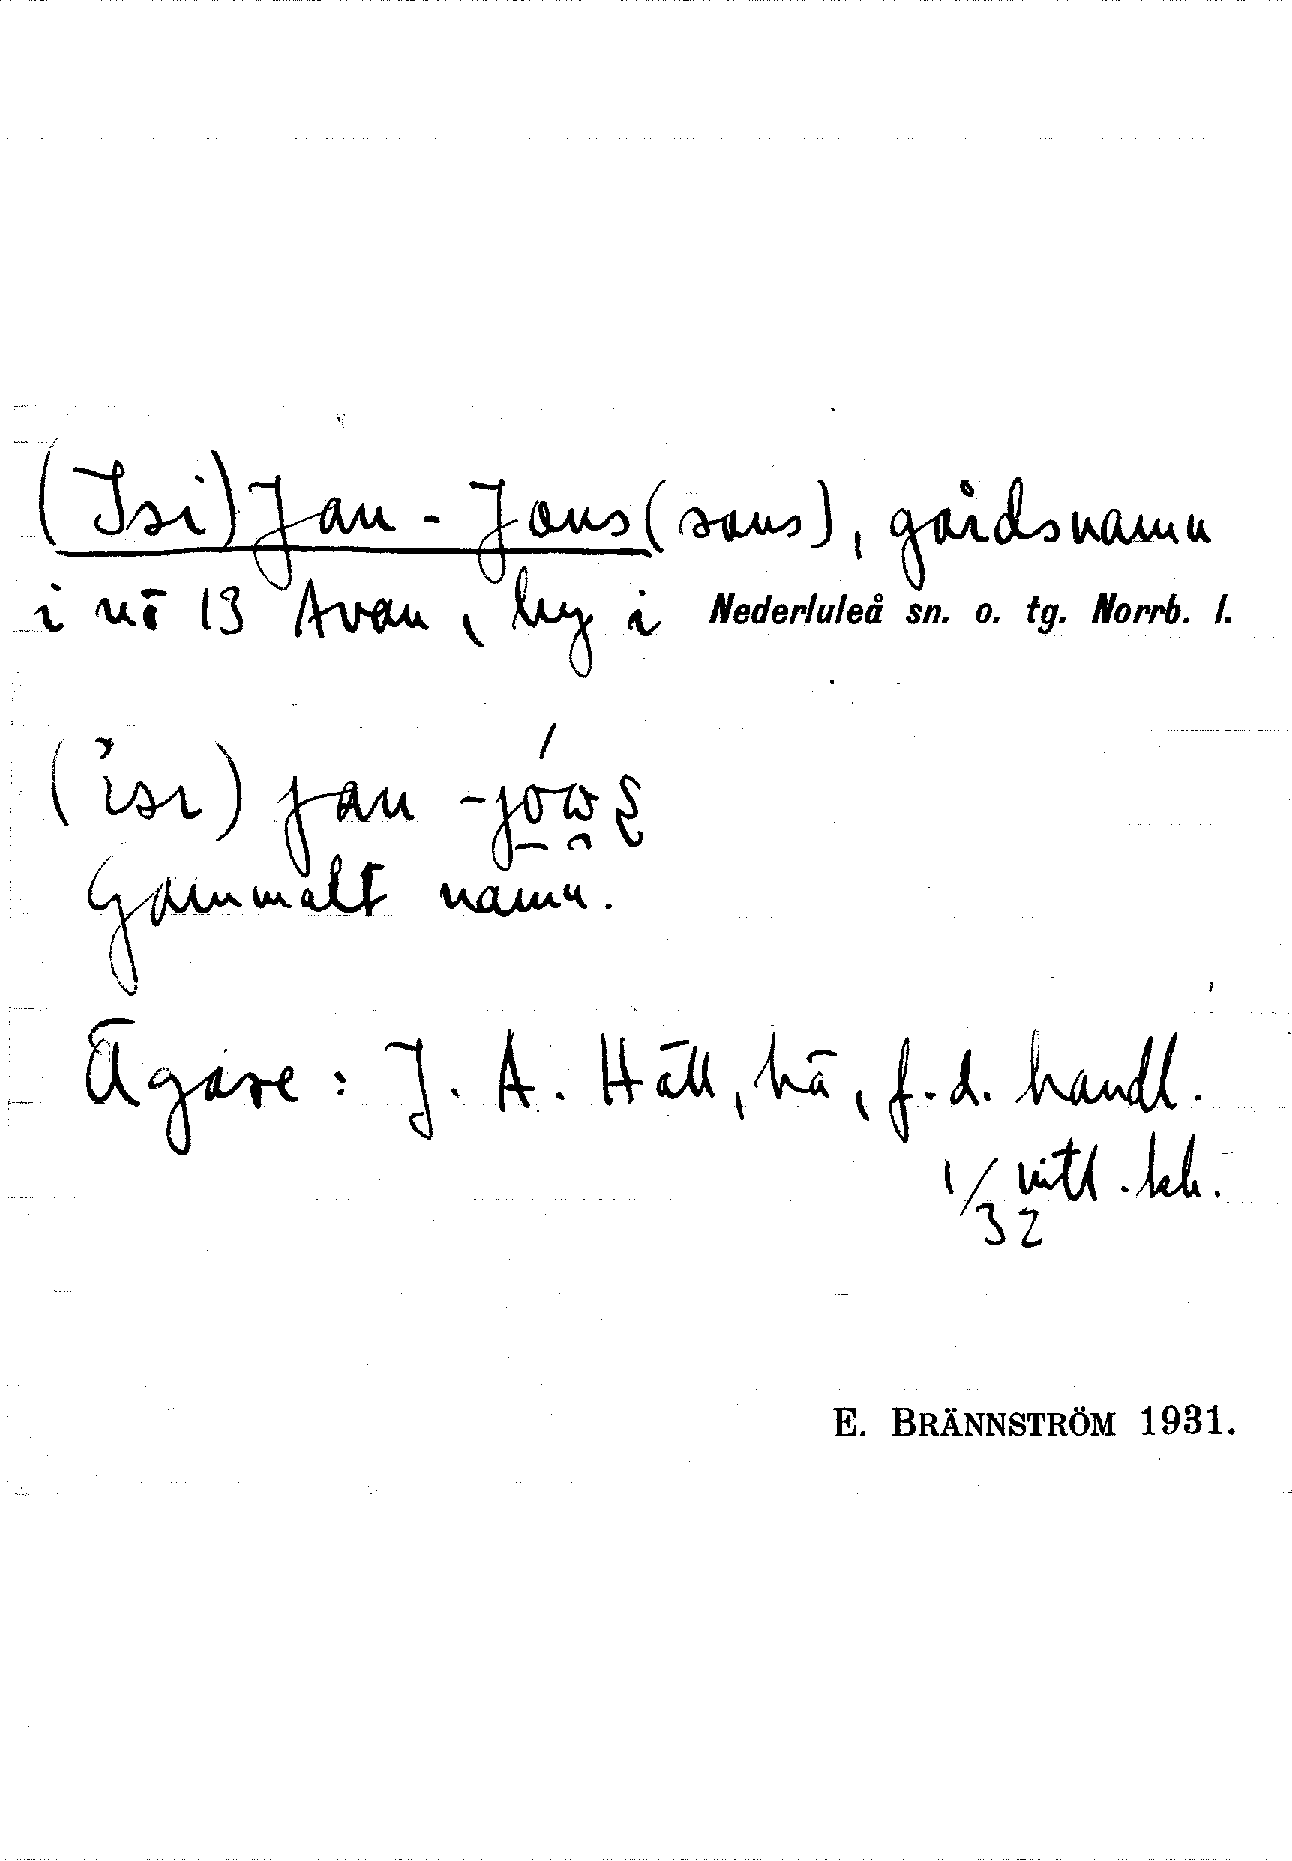 (Isi) Jan - Jons(sons), gårdsnamn
i nō 13 Avan, by i Nederluleå sn. o. tg. Norrb. l.
(ısı) jan -
Gammalt namn.
Ägare: J. A. Häll, hä, f.d. handl.
1/32 mtl. kh.
E. BRÄNNSTRÖM 1931.